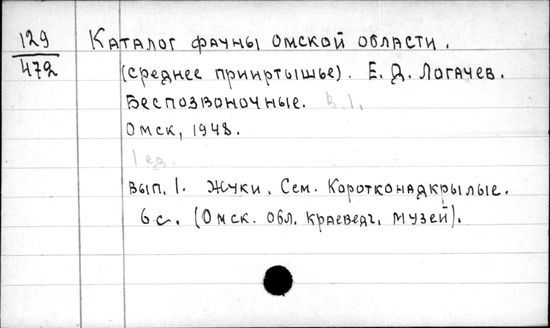 129
472
Каталог фауны Омской области.
(среднее прииртышье). Е. Д. Логачев.
Беспозвоночные. В. 1.
Омск, 1948.
1 ед.
Вып. 1. Жуки. Сем. Коротконадкрылые.
6 с. (Омск. обл. краеведч. музей).